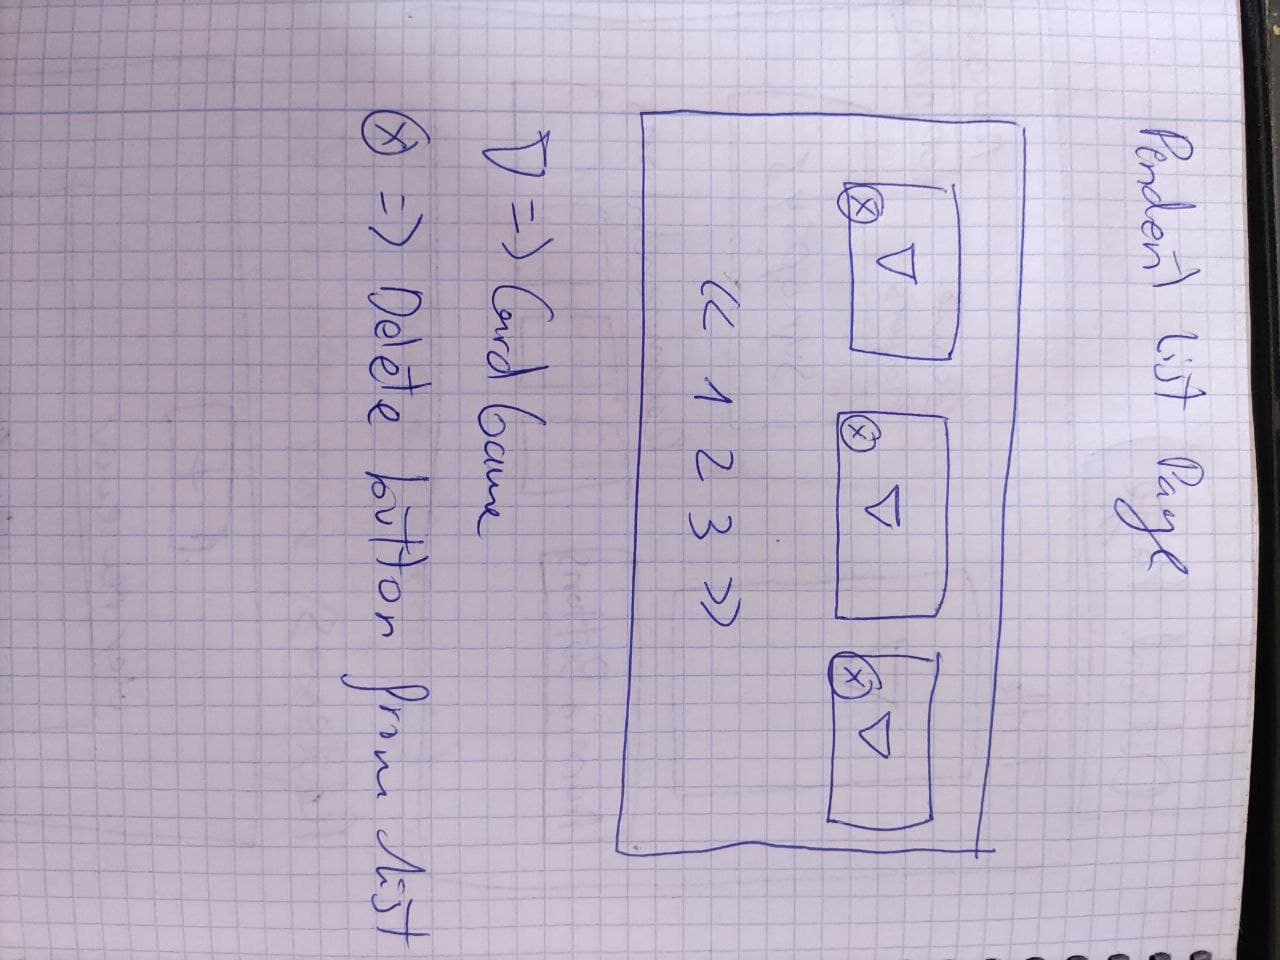 Pendent list Page
X
X
X
<< 1 2 3 >>
▽ => Card Game
ⓧ => Delete button from list